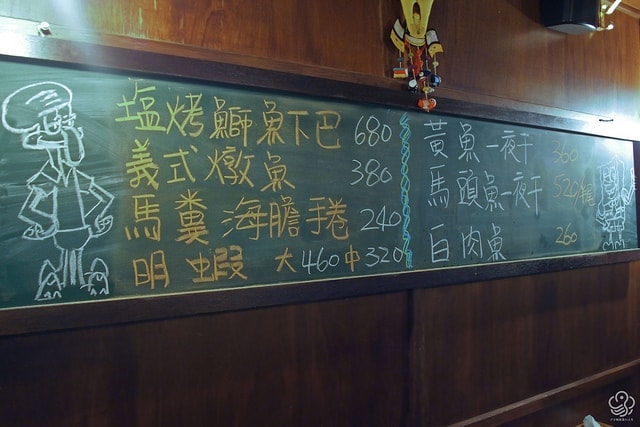 塩烤鰤魚下巴 680
義式燉魚 380
馬糞海膽手捲 240
明蝦 大460中320
黃魚一夜干 360
馬頭魚一夜干 520/尾
白肉魚 260